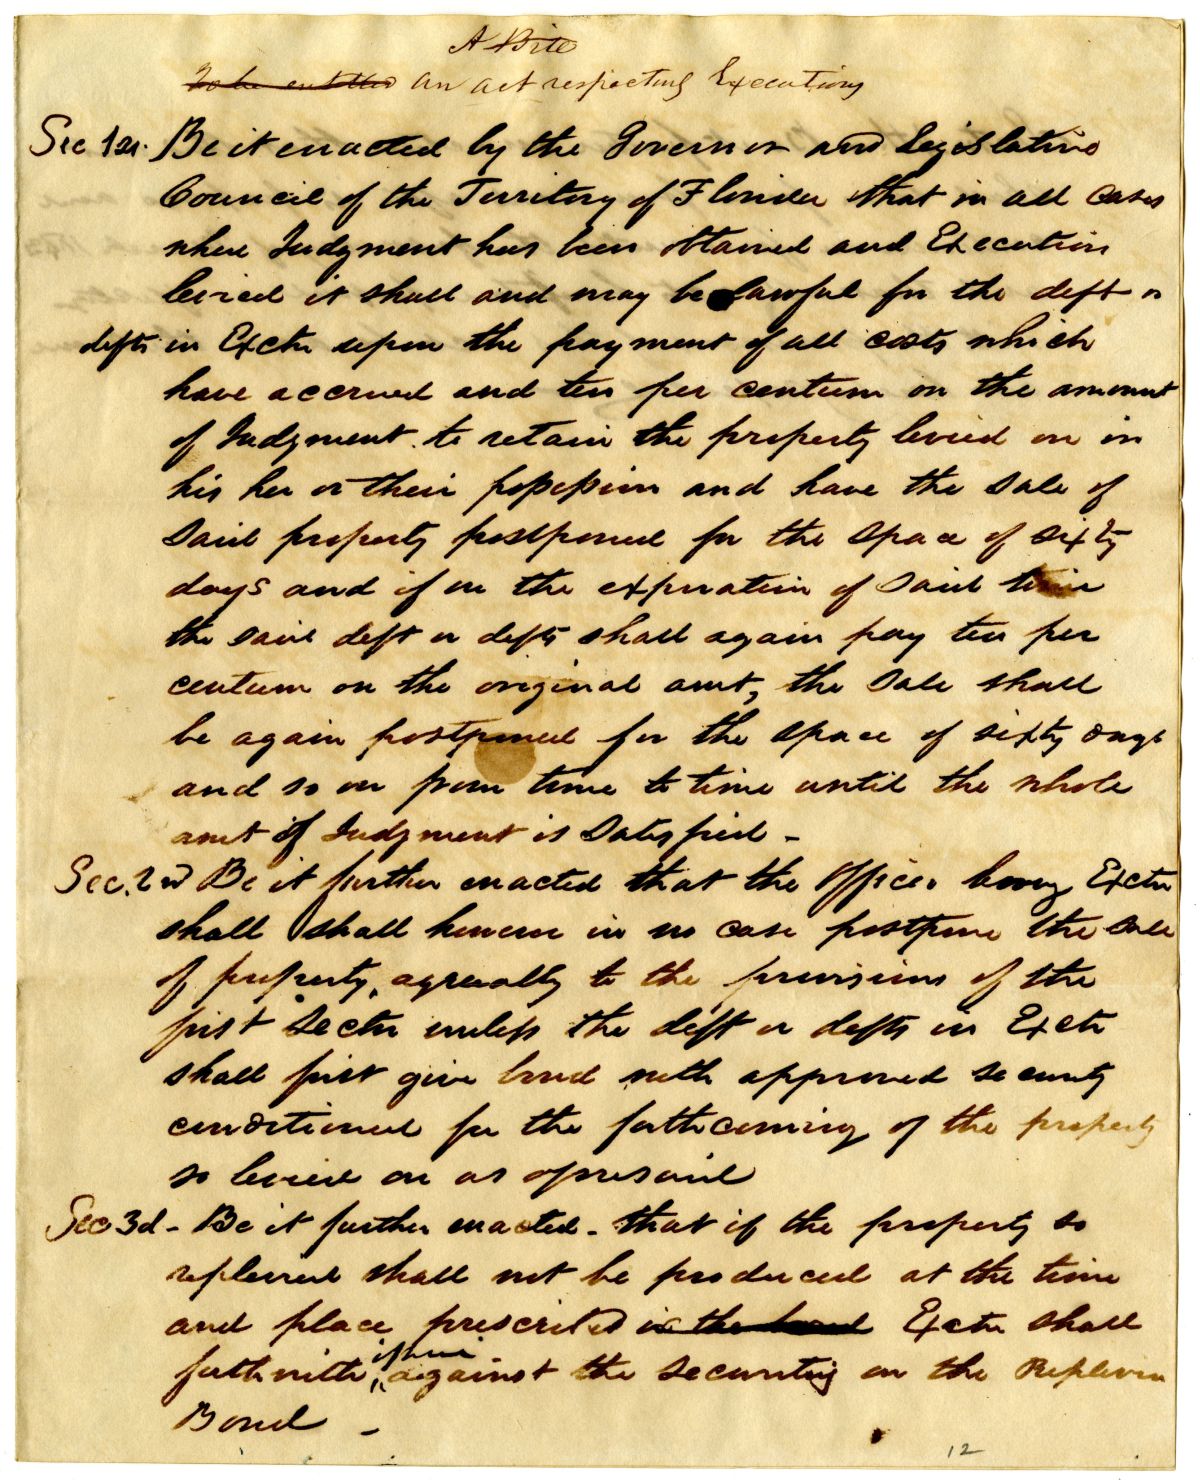 A Bill
To be entitled an act respecting Executions
Sec 1st. Be it enacted by the Governor and Legislative
Council of the Territory of Florida that in all cases
where Judgment has been obtained and Execution
levied it shall and may be lawful for the deft or
defts in Exctn upon the payment of all costs which
have accrued and ten per centum on the amount
of Judgment to retain the property levied on in
his her or their possession and have the sale of
said property postponed for the space of sixty
days and if on the expiration of said time
the said deft or defts shall again pay ten per
centum on the original amt, the sale shall
be again postponed for the space of sixty days
and so on from time to time until the whole
amt of Judgment is satisfied -
Sec. 2nd Be it further enacted that the Officer levying Exctn
shall shall however in no case postpone the sale
of property, agreeably to the provisions of the
first Sectn unless the deft or defts in Exctn
shall first give bond with approved security
conditioned for the forthcoming of the property
so levied on as aforesaid
Sec 3d - Be it further enacted - that if the property so
replevied shall not be produced at the time
and place prescribed in the bond Exctn shall
forthwith issue against the security on the Replevin
Bond -
12